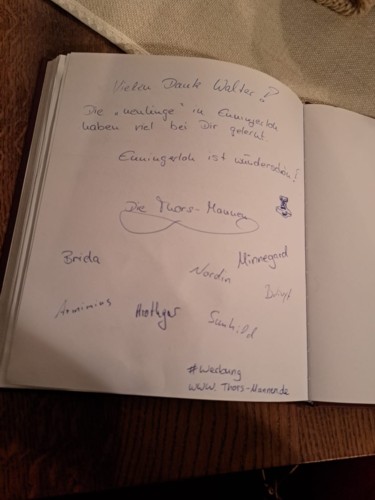 Vielen Dank Walter!!
Die "neulinge" in Enningerloh
haben viel bei Dir gelernt
Enningerloh ist wunderschön!
Die Thors-Mannen
Brida
Minnegard
Nordin
Arminius
Hrothgar
Sunhild
#Werbung
WWW.Thors-Mannen.de